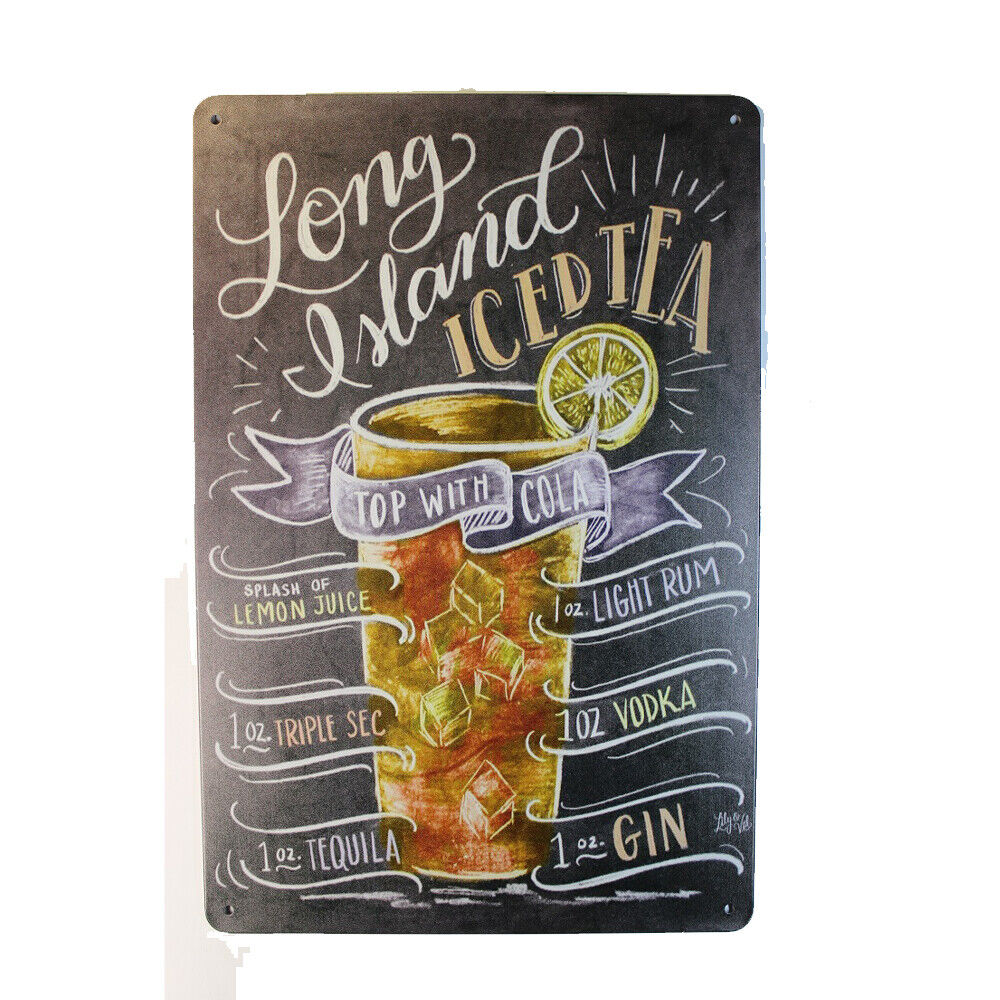 Long
Island
ICED TEA
TOP WITH COLA
SPLASH OF
LEMON JUICE
1 oz. LIGHT RUM
1 oz. TRIPLE SEC
1 OZ VODKA
1 oz. TEQUILA
1 oz. GIN
Lily & Val